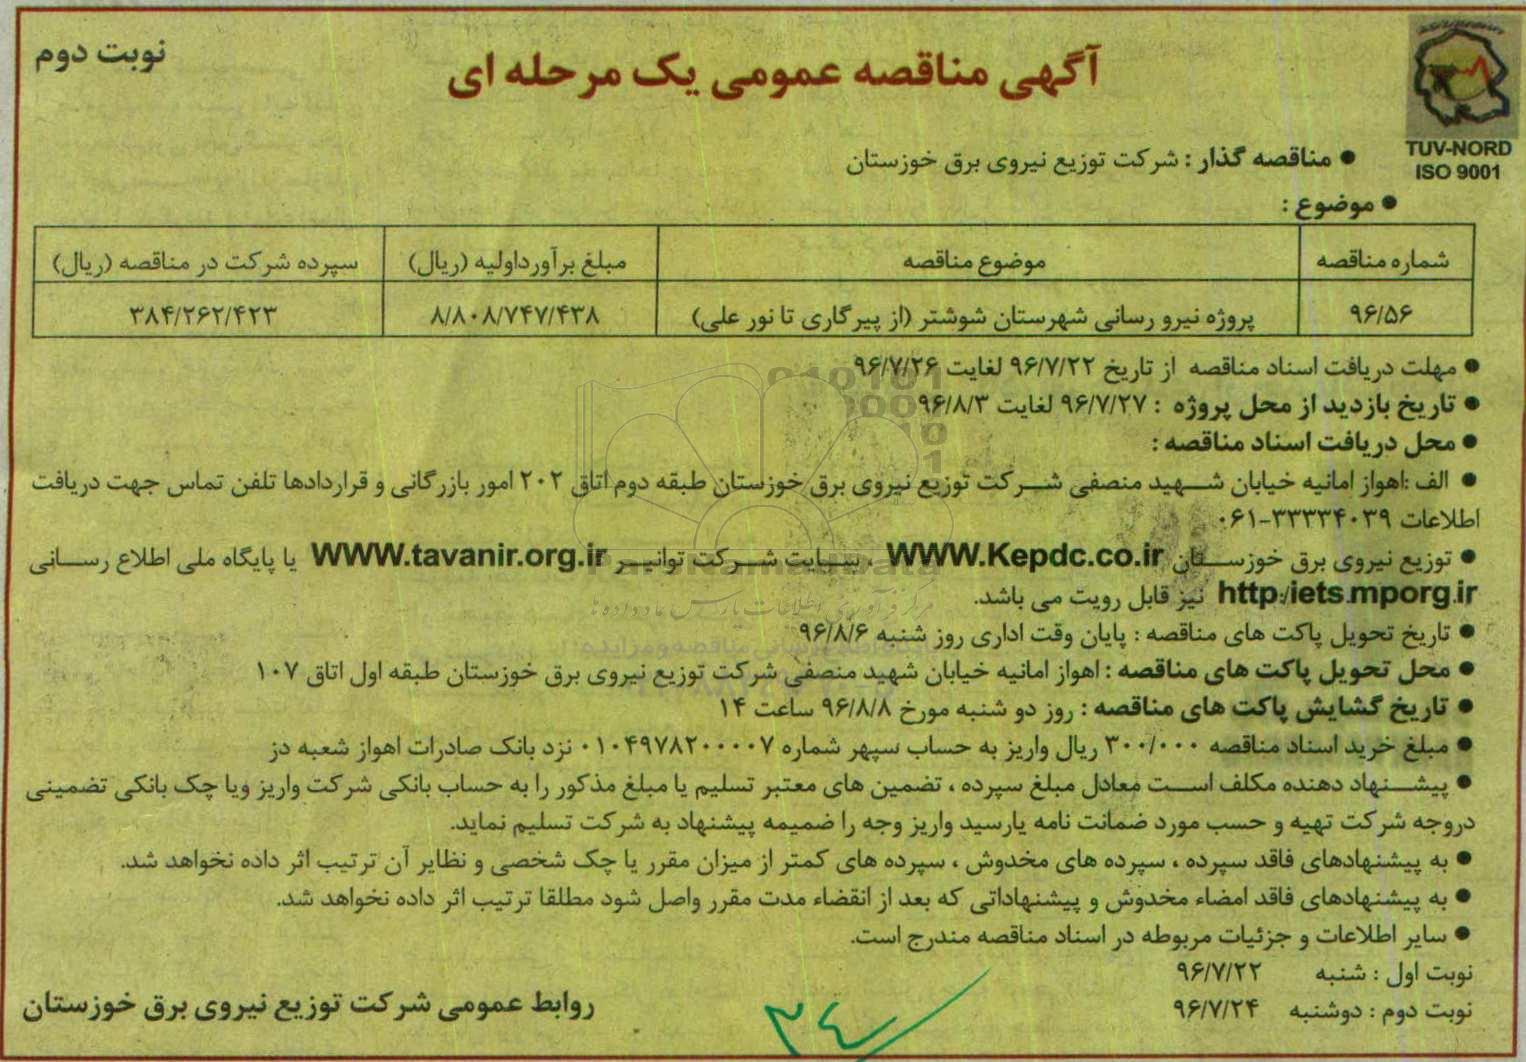 نوبت دوم
آگهی مناقصه عمومی یک مرحله ای
TUV-NORD
ISO 9001
● مناقصه گذار : شرکت توزیع نیروی برق خوزستان
● موضوع :
شماره مناقصه موضوع مناقصه مبلغ برآورداولیه (ریال) سپرده شرکت در مناقصه (ریال)
۹۶/۵۶ پروژه نیرو رسانی شهرستان شوشتر (از پیرگاری تا نور علی) ۸/۸۰۸/۷۴۷/۴۳۸ ۳۸۴/۲۶۲/۴۲۳
● مهلت دریافت اسناد مناقصه از تاریخ ۹۶/۷/۲۲ لغایت ۹۶/۷/۲۶
● تاریخ بازدید از محل پروژه : ۹۶/۷/۲۷ لغایت ۹۶/۸/۳
● محل دریافت اسناد مناقصه :
● الف :اهواز امانیه خیابان شهید منصفی شرکت توزیع نیروی برق خوزستان طبقه دوم اتاق ۲۰۲ امور بازرگانی و قراردادها تلفن تماس جهت دریافت
اطلاعات ۳۳۳۳۴۰۳۹-۰۶۱
● توزیع نیروی برق خوزستان WWW.Kepdc.co.ir ، سایت شرکت توانیر WWW.tavanir.org.ir یا پایگاه ملی اطلاع رسانی
http:/iets.mporg.ir نیز قابل رویت می باشد.
● تاریخ تحویل پاکت های مناقصه : پایان وقت اداری روز شنبه ۹۶/۸/۶
● محل تحویل پاکت های مناقصه : اهواز امانیه خیابان شهید منصفی شرکت توزیع نیروی برق خوزستان طبقه اول اتاق ۱۰۷
● تاریخ گشایش پاکت های مناقصه : روز دو شنبه مورخ ۹۶/۸/۸ ساعت ۱۴
● مبلغ خرید اسناد مناقصه ۳۰۰/۰۰۰ ریال واریز به حساب سپهر شماره ۰۱۰۴۹۷۸۲۰۰۰۰۷ نزد بانک صادرات اهواز شعبه دز
● پیشنهاد دهنده مکلف است معادل مبلغ سپرده ، تضمین های معتبر تسلیم یا مبلغ مذکور را به حساب بانکی شرکت واریز ویا چک بانکی تضمینی
دروجه شرکت تهیه و حسب مورد ضمانت نامه یارسید واریز وجه را ضمیمه پیشنهاد به شرکت تسلیم نماید.
● به پیشنهادهای فاقد سپرده ، سپرده های مخدوش ، سپرده های کمتر از میزان مقرر یا چک شخصی و نظایر آن ترتیب اثر داده نخواهد شد.
● به پیشنهادهای فاقد امضاء مخدوش و پیشنهاداتی که بعد از انقضاء مدت مقرر واصل شود مطلقا ترتیب اثر داده نخواهد شد.
● سایر اطلاعات و جزئیات مربوطه در اسناد مناقصه مندرج است.
نوبت اول : شنبه ۹۶/۷/۲۲
نوبت دوم : دوشنبه ۹۶/۷/۲۴
روابط عمومی شرکت توزیع نیروی برق خوزستان
۳۴